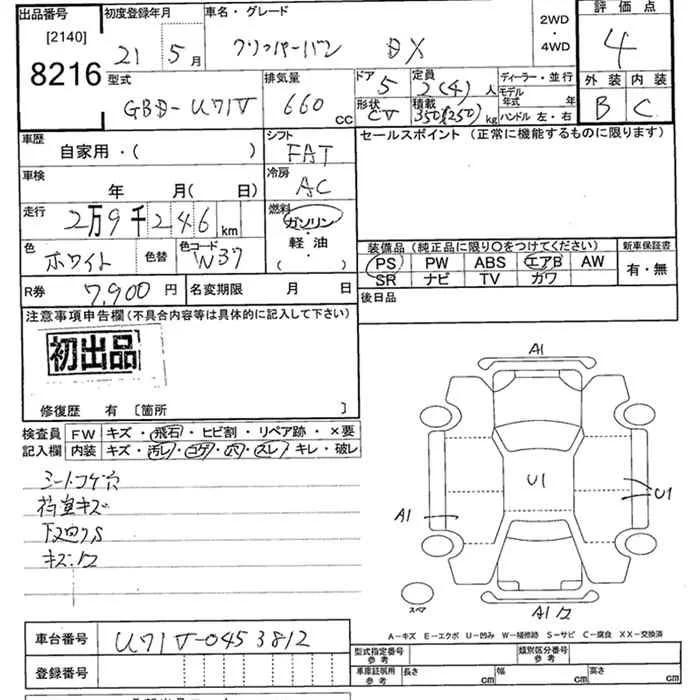 出品番号 [2140] 8216
初度登録年月 21 5月
車名・グレード クリッパーバン DX
2WD・4WD
評価点 4
型式 GBD-U71V
排気量 660cc
ドア 5
定員 2(4)人
ディーラー・並行
形状 CV
積載 350(250)kg
モデル年式 年
ハンドル 左・右
外装 B
内装 C
車歴 自家用・( )
シフト FAT
セールスポイント (正常に機能するものに限ります)
車検 年 月( 日)
冷房 AC
走行 2万9千246km
燃料 ガソリン・軽油・( )
色 ホワイト 色替
色コード W37
装備品(純正品に限り○をつけてください)
新車保証書
PS PW ABS エアB AW
SR ナビ TV カワ
有・無
R券 7,900円
名変期限 月 日
後日品
注意事項申告欄(不具合内容等は具体的に記入して下さい)
初出品
修復歴 有 〔箇所 〕
検査員記入欄
FW キズ・飛石・ヒビ割・リペア跡・×要
内装 キズ・汚レ・コゲ・穴・スレ・キレ・破レ
シートコゲ穴
荷室キズ
下廻りS
キズ・ワ
A1
U1
U1
A1
A1ワ
スペア
A-キズ E-エクボ U-凹み W-補修跡 S-サビ C-腐食 XX-交換済
車台番号 U71V-0453812
登録番号
型式指定番号 参考
類別区分番号 参考
車庫証明用 参考 長さ cm 幅 cm 高さ cm